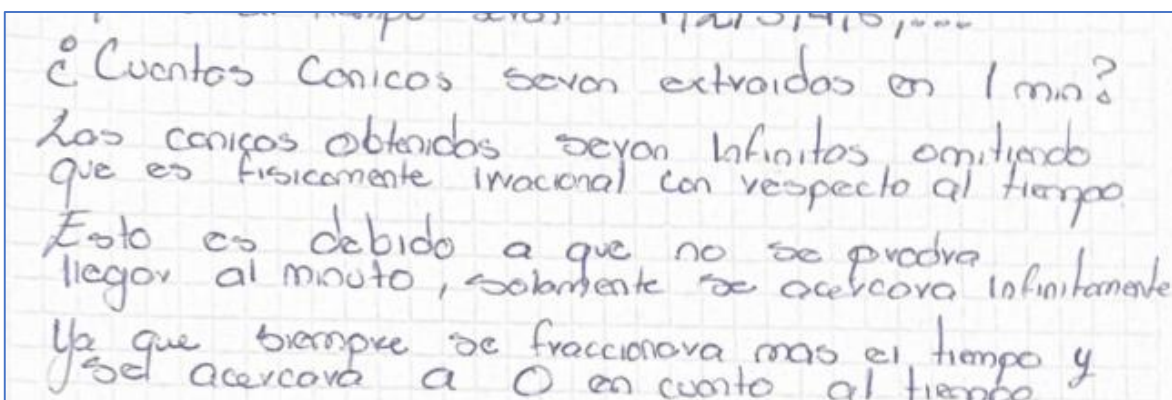 1,2,3,4,5,....
¿Cuentas Canicas seran extraidas en 1 min?
Las canicas obtenidas seran infinitas omitiendo
que es fisicamente irracional con respecto al tiempo
Esto es debido a que no se prodra
llegar al minuto, solamente se acercara infinitamente
Ya que siempre se fraccionara mas el tiempo y
se acercara a 0 en cuanto al tiempo